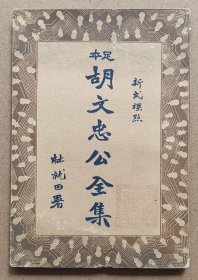 新式標點
足本
胡文忠公全集
杜就田署